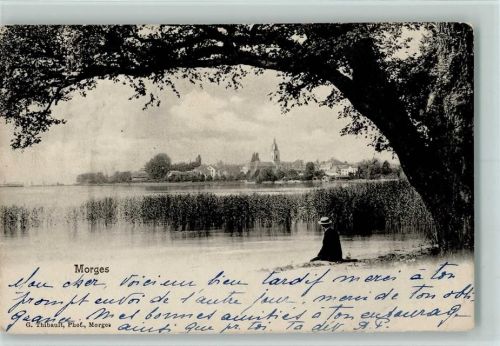 Morges
Mon cher, Voici un bien tardif mais merci à ton
prompt envoi de l'autre jour, merci de ton obli-
geance. Mes bonnes amitiés à ton entourage
G. Thibault, Phot., Morges
ainsi que pr toi ta dév.